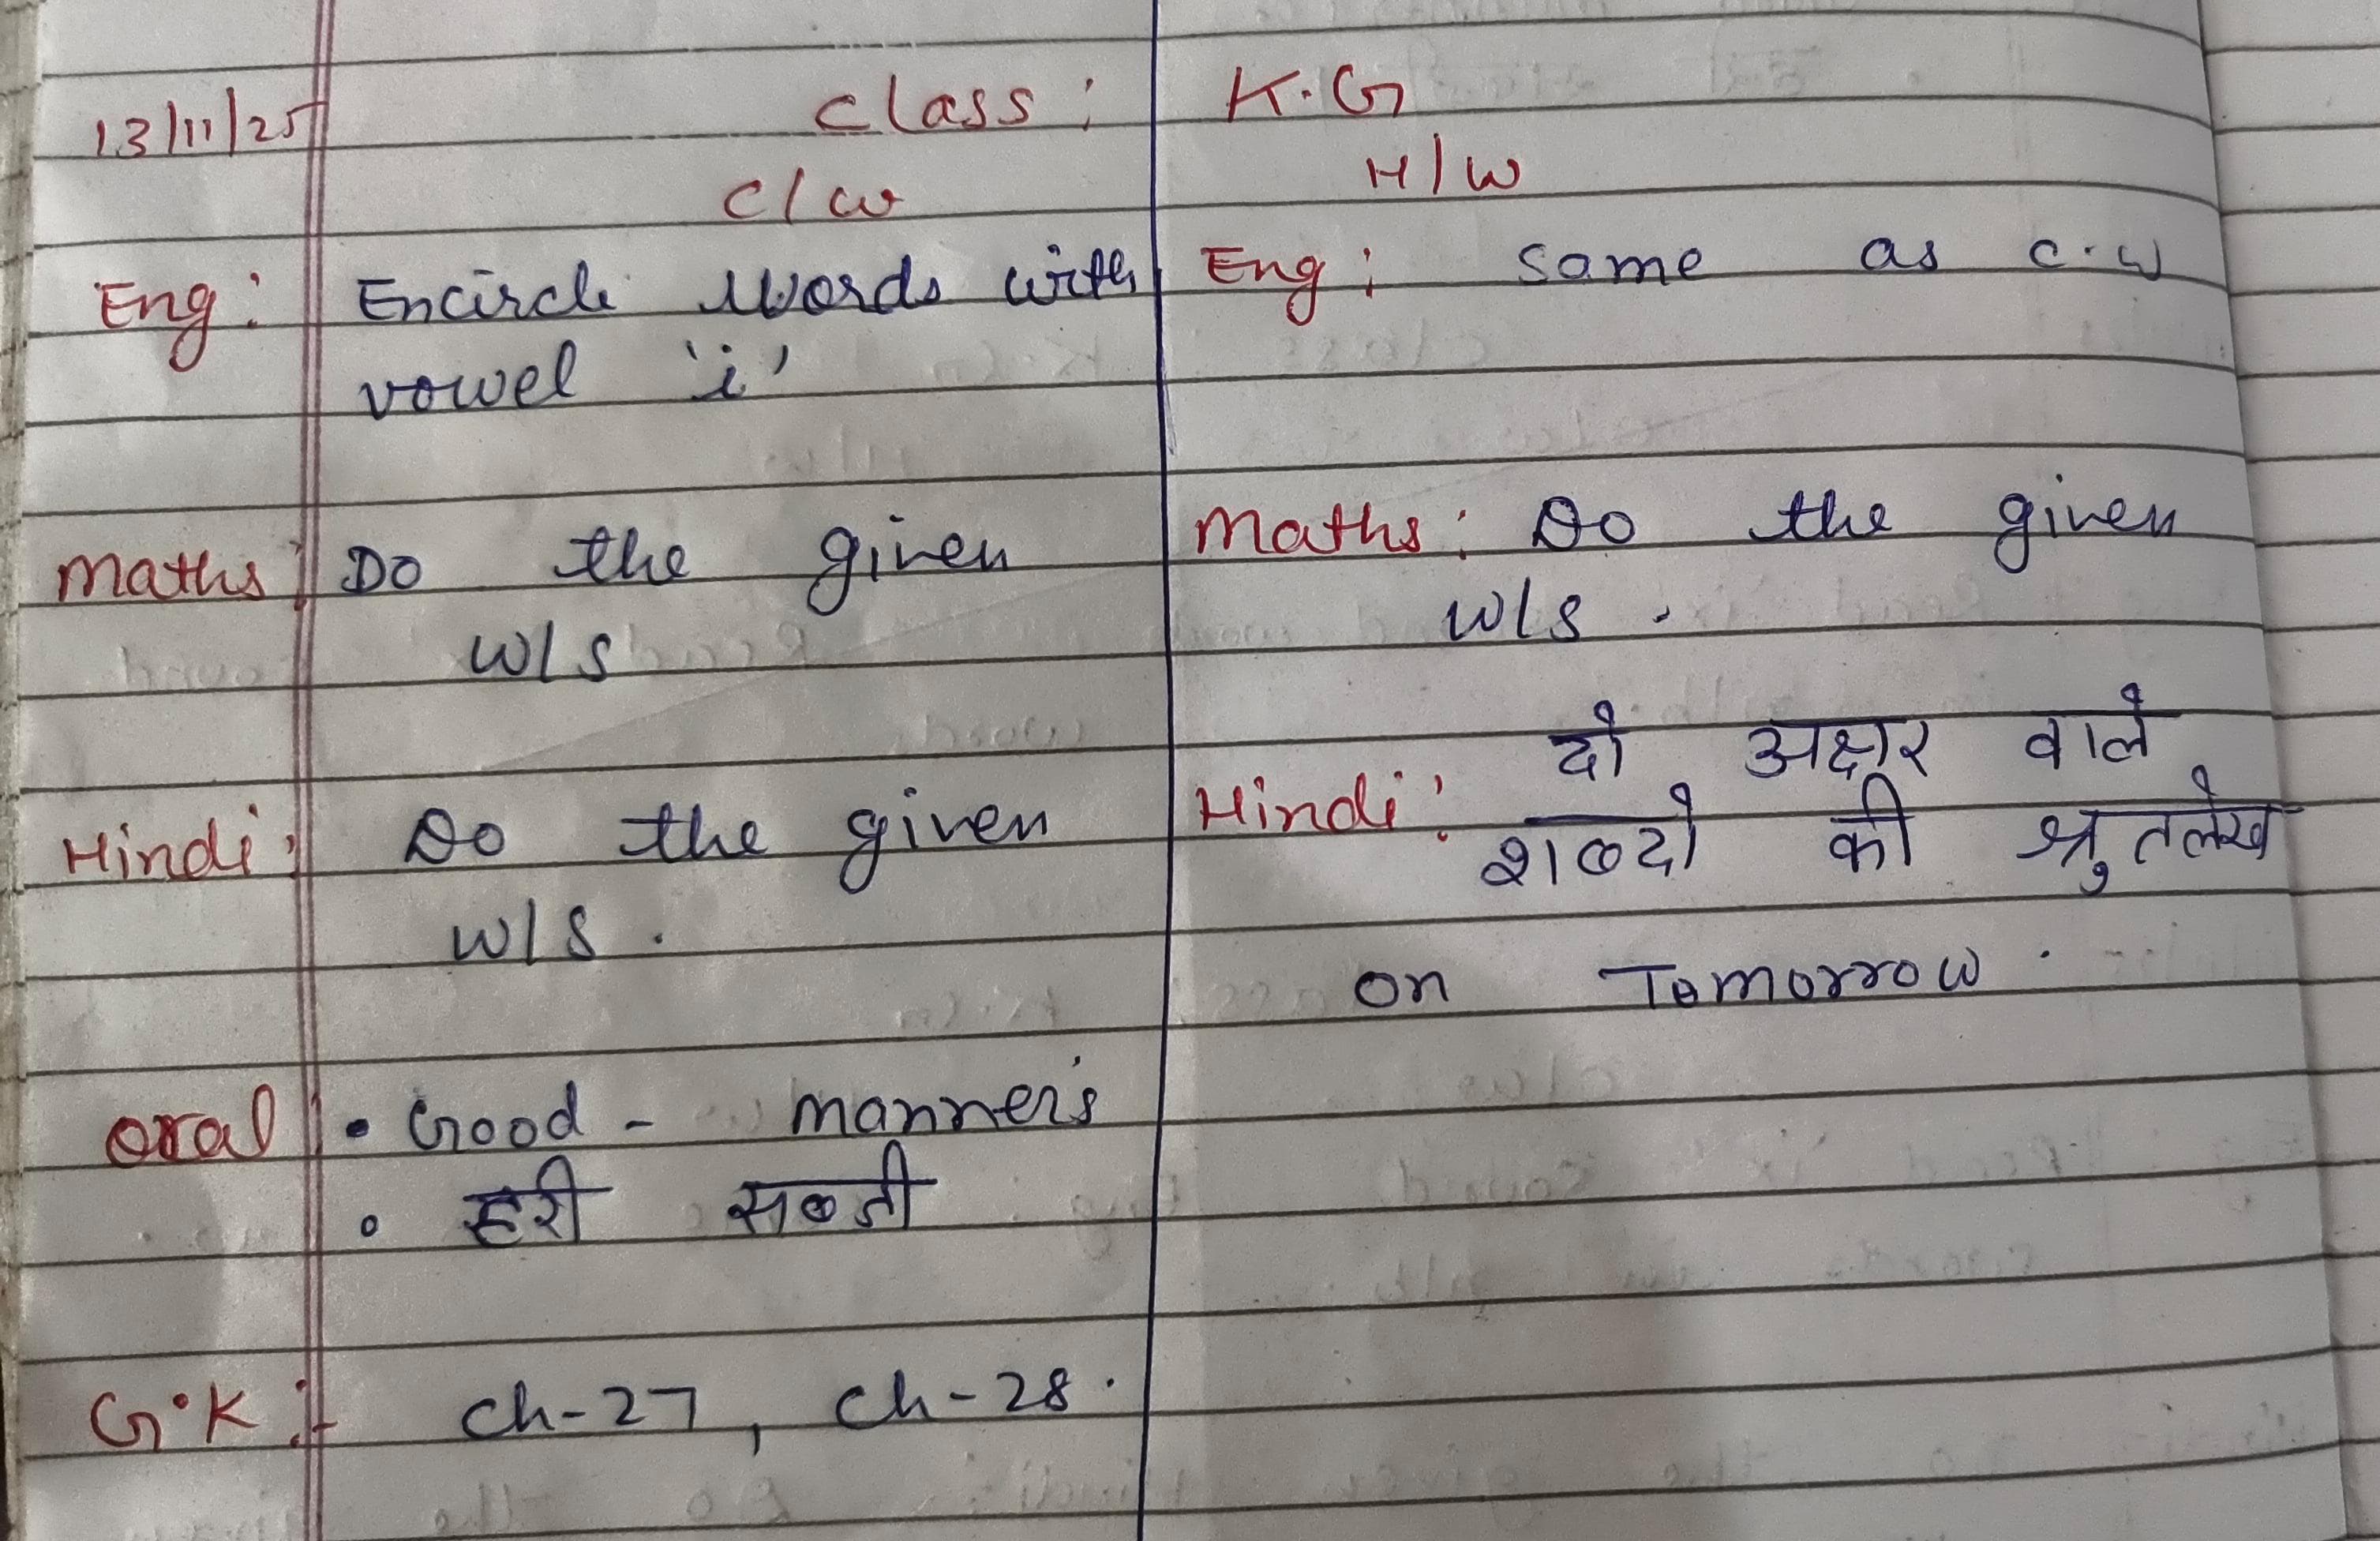 13/11/25 class : K.G
c/w
Eng: Encircle words with
vowel 'i'
Maths: Do the given
W/S
Hindi: Do the given
W/S.
oral • Good - manners
• हरी सब्जी
G.K :- ch-27, ch-28.
H/W
Eng: same as c.w
Maths: Do the given
W/S.
Hindi: दो अक्षर वाले
शब्दो की श्रुतलेख
on Tomorrow.